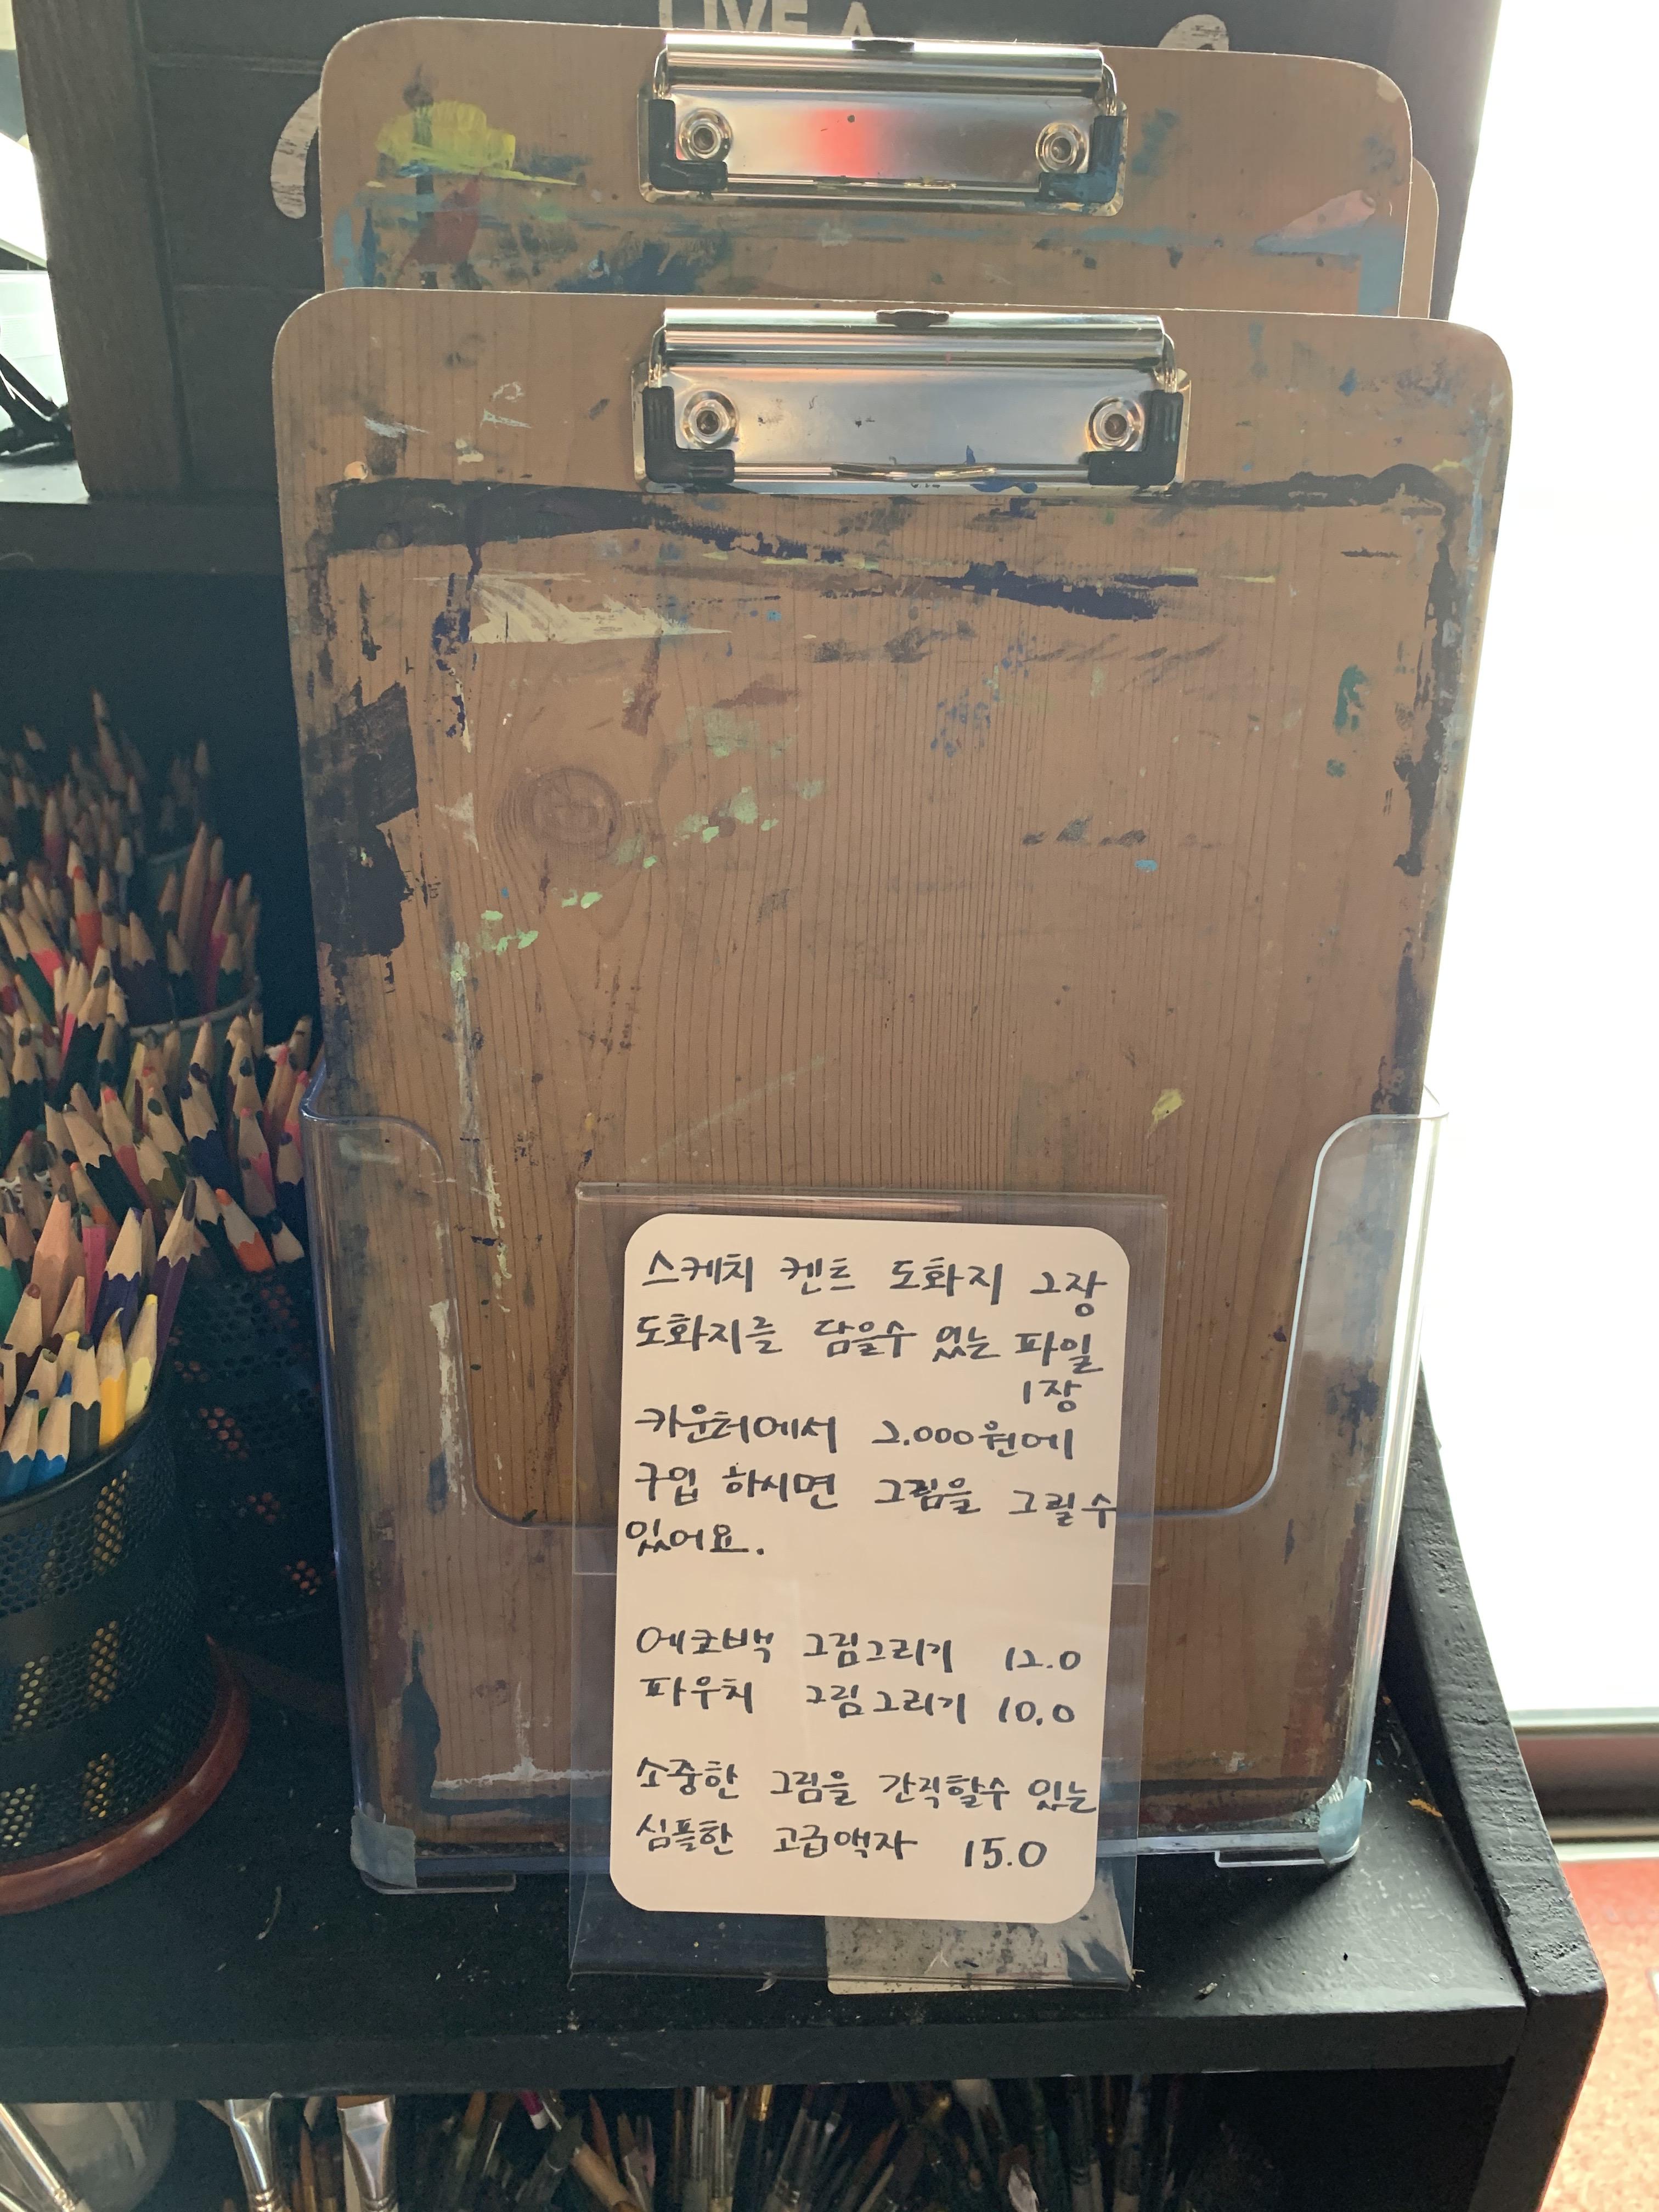 LIVE A
스케치 켄트 도화지 2장
도화지를 담을수 있는 파일
1장
카운터에서 2.000원에
구입 하시면 그림을 그릴수
있어요.
에코백 그림그리기 12.0
파우치 그림그리기 10.0
소중한 그림을 간직할수 있는
심플한 고급액자 15.0